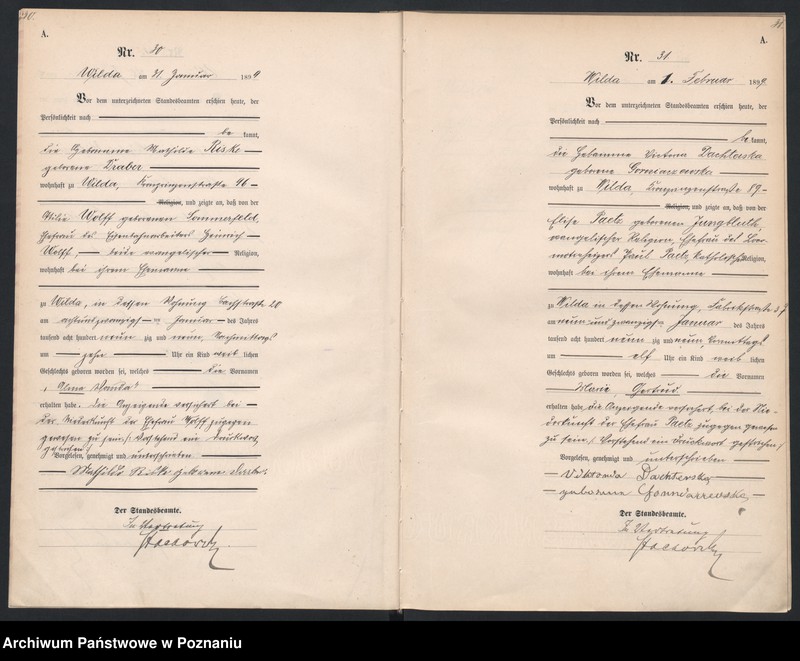 A.
Nr. 30
Wilda am 31. Januar 1899
Vor dem unterzeichneten Standesbeamten erschien heute, der
Persönlichkeit nach
be kannt,
die Hebamme Mathilde Reske
geborene Draber
wohnhaft zu Wilda, Kronprinzenstraße 46
Religion, und zeigte an, daß von der
Wolff geborenen Sommerfeld,
Ehefrau des Eisenbahnarbeiters Heinrich
Wolff, beide evangelischer Religion,
wohnhaft bei ihrem Ehemanne
zu Wilda, in dessen Wohnung 20
am achtundzwanzigsten Januar des Jahres
tausend acht hundert neun zig und neun, Nachmittags
um zehn Uhr ein Kind weib lichen
Geschlechts geboren worden sei, welches die Vornamen
Alma Wanda
erhalten habe. Die Anzeigende versichert bei
der Niederkunft der Ehefrau Wolff zugegen
gewesen zu sein. Vorstehend ein Druckwort
gestrichen.
Vorgelesen, genehmigt und unterschrieben
Mathilde Reske geborene Draber
Der Standesbeamte.
In Vertretung
31.
A.
Nr. 31
Wilda am 1. Februar 1899
Vor dem unterzeichneten Standesbeamten erschien heute, der
Persönlichkeit nach
be kannt,
die Hebamme Dachterska
geborene
wohnhaft zu Wilda, Kronprinzenstraße 89
Religion, und zeigte an, daß von der
Elise Paetz geborenen Jungbluth,
evangelischer Religion, Ehefrau des
Paul Paetz, katholischer Religion,
wohnhaft bei ihrem Ehemanne
zu Wilda in dessen Wohnung, Fabrikstraße 37
am neunundzwanzigsten Januar des Jahres
tausend acht hundert neun zig und neun, Vormittags
um elf Uhr ein Kind weib lichen
Geschlechts geboren worden sei, welches die Vornamen
Marie, Gertrud
erhalten habe, die Anzeigende versichert, bei der Nie-
derkunft der Ehefrau Paetz zugegen gewesen
zu sein. Vorstehend ein Druckwort gestrichen.
Vorgelesen, genehmigt und unterschrieben
Dachterska
geborene
Der Standesbeamte.
In Vertretung
Archiwum Państwowe w Poznaniu